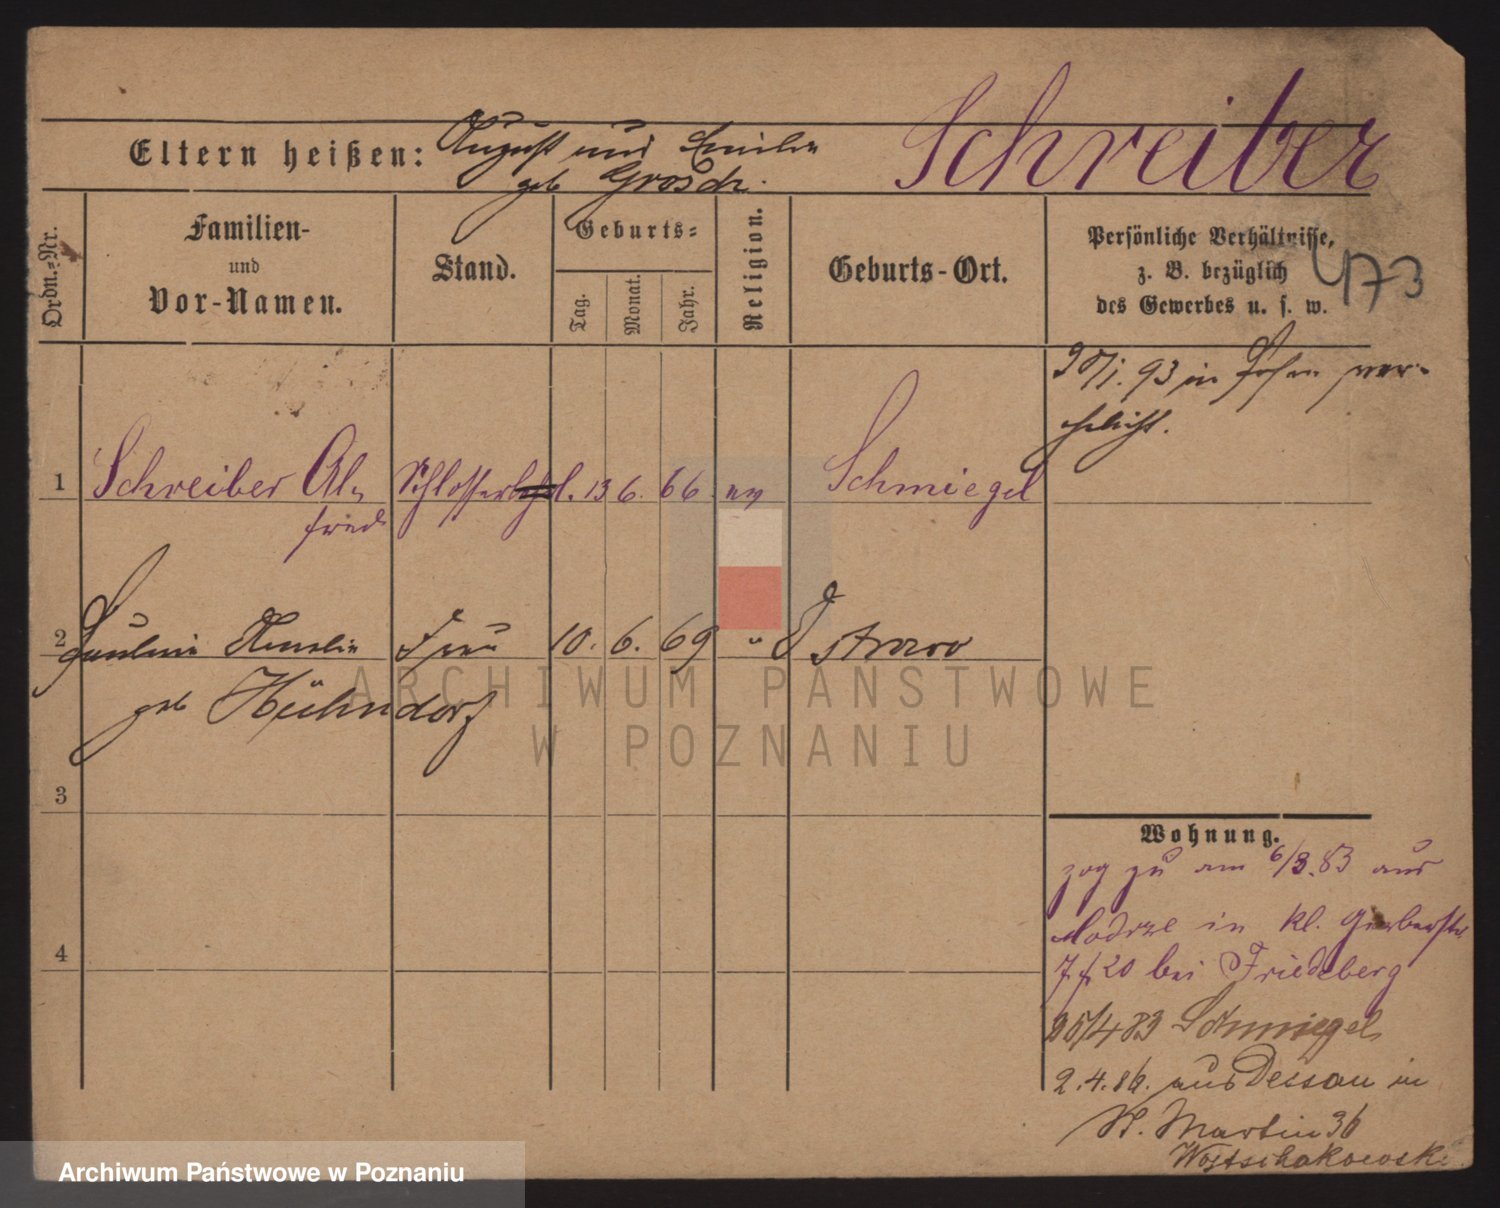 Schreiber
Eltern heißen: August und Emilie
geb Grosch.
Ordn.-Nr.
Familien-
und
Vor-Namen.
Stand.
Geburts-
Tag.
Monat.
Jahr.
Religion.
Geburts-Ort.
Persönliche Verhältnisse,
z. B. bezüglich
des Gewerbes u. s. w.
473
93 in Posen ver-
ehelicht.
1 Schreiber Al- Schlosser 13 6. 66 ev Schmiegel
fred
2 Pauline Frau 10. 6. 69 " Ostrowo
geb Hühndorf
3
4
Wohnung.
zog zu am 6/3.83 aus
Modrze in kl. Gerberstr
7 f 20 bei Friedeberg
25/4 83 Schmiegel
2.4.86. aus Dessau in
St. Martin 36
ARCHIWUM PAŃSTWOWE
W POZNANIU
Archiwum Państwowe w Poznaniu